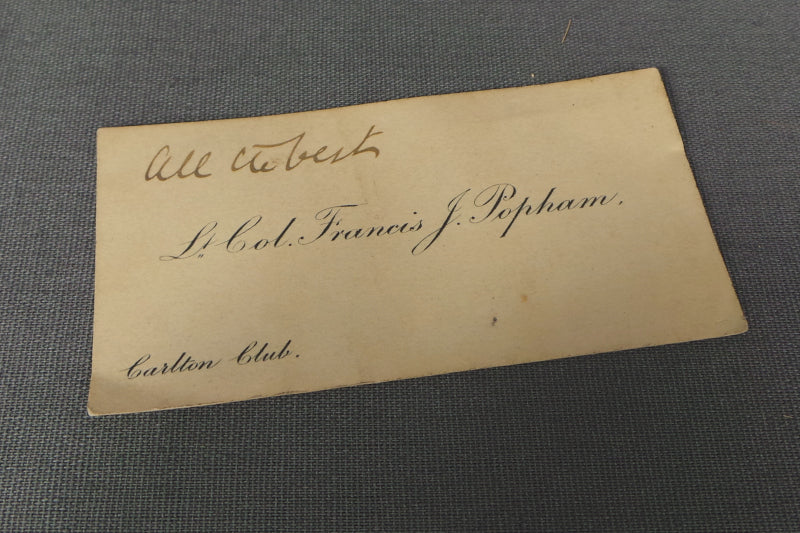 All the best
Lt. Col. Francis J. Popham.
Carlton Club.